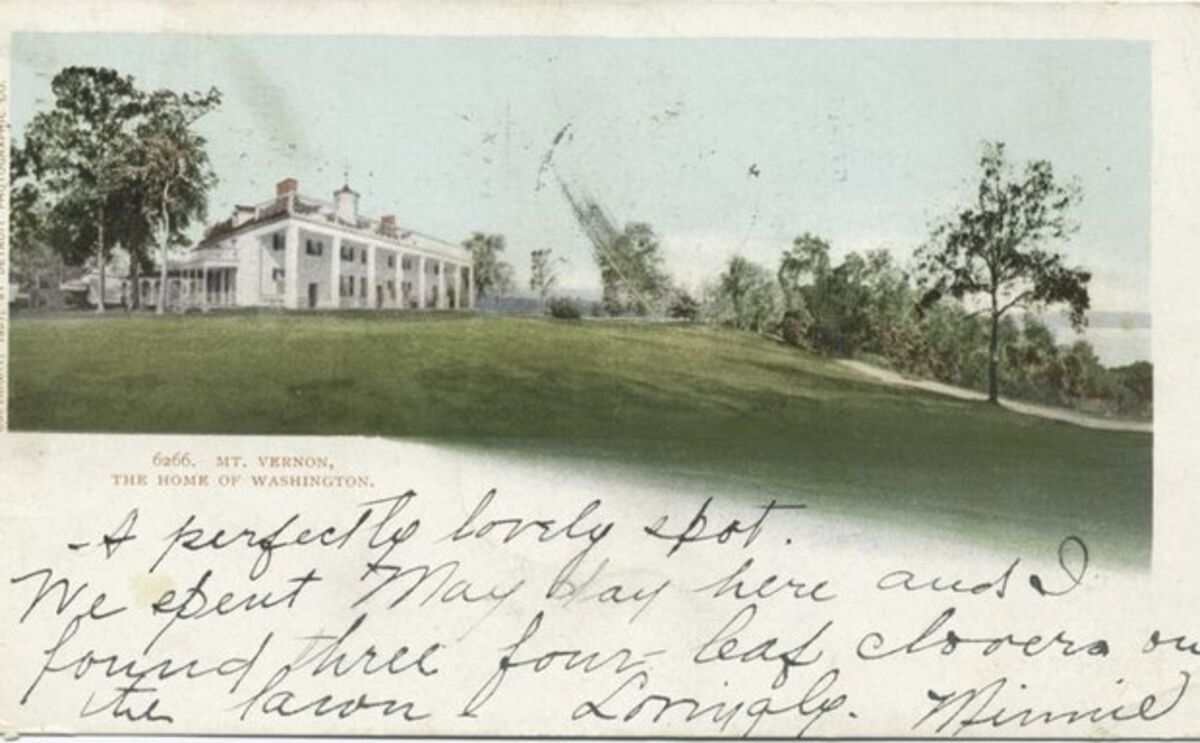 6266. MT. VERNON,
THE HOME OF WASHINGTON.
A perfectly lovely spot.
We spent May day here and I
found three four-leaf clovers on
the lawn - Lovingly. Minnie